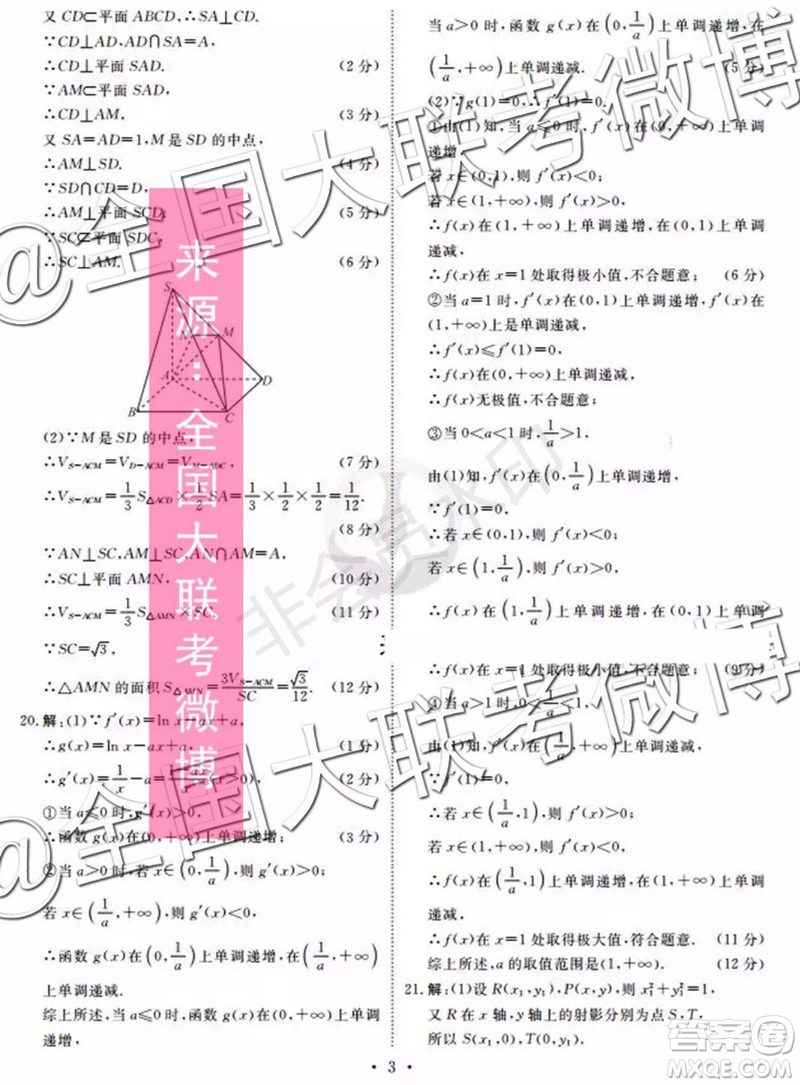 又 CD⊂平面 ABCD,∴SA⊥CD.
∵CD⊥AD,AD∩SA=A,
∴CD⊥平面 SAD. (2 分)
∵AM⊂平面 SAD,
∴CD⊥AM, (3 分)
又 SA=AD=1,M 是 SD 的中点,
∴AM⊥SD. (4 分)
∵SD∩CD=D,
∴AM⊥平面 SCD. (5 分)
∵SC⊂平面 SDC,
∴SC⊥AM. (6 分)
S
N
M
A
D
B
C
(2)∵M 是 SD 的中点,
∴V_{S-ACM}=V_{D-ACM}=V_{M-ADC}, (7 分)
∴V_{S-ACM}=\frac{1}{3}S_{△ACD}×\frac{1}{2}SA=\frac{1}{3}×\frac{1}{2}×\frac{1}{2}=\frac{1}{12}.
(8 分)
∵AN⊥SC,AM⊥SC,AN∩AM=A,
∴SC⊥平面 AMN, (10 分)
∴V_{S-ACM}=\frac{1}{3}S_{△AMN}×SC. (11 分)
∵SC=√3,
∴△AMN 的面积 S_{△AMN}=\frac{3V_{S-ACM}}{SC}=\frac{√3}{12}. (12 分)
20.解:(1)∵f′(x)=ln x-ax+a,
∴g(x)=ln x-ax+a, (1 分)
∴g′(x)=\frac{1}{x}-a=\frac{1-ax}{x}(x>0). (2 分)
①当 a≤0 时,g′(x)>0,
∴函数 g(x)在(0,+∞)上单调递增; (3 分)
②当 a>0 时,若 x∈(0,\frac{1}{a}),则 g′(x)>0;
若 x∈(\frac{1}{a},+∞),则 g′(x)<0,
∴函数 g(x)在(0,\frac{1}{a})上单调递增,在(\frac{1}{a},+∞)
上单调递减.
综上所述,当 a≤0 时,函数 g(x)在(0,+∞)上单调
递增,
当 a>0 时,函数 g(x)在(0,\frac{1}{a})上单调递增,在
(\frac{1}{a},+∞)上单调递减. (5 分)
(2)∵g(1)=0,∴f′(1)=0.
①由(1)知,当 a≤0 时,f′(x)在(0,+∞)上单调
递增,
若 x∈(0,1),则 f′(x)<0;
若 x∈(1,+∞),则 f′(x)>0,
∴f(x)在(1,+∞)上单调递增,在(0,1)上单调
递减,
∴f(x)在 x=1 处取得极小值,不合题意; (6 分)
②当 a=1 时,f′(x)在(0,1)上单调递增,在
(1,+∞)上是单调递减,
∴f′(x)≤f′(1)=0,
∴f(x)在(0,+∞)上单调递减,
∴f(x)无极值,不合题意;
③当 0<a<1 时,\frac{1}{a}>1,
由(1)知,f′(x)在(0,\frac{1}{a})上单调递增,
∵f′(1)=0,
∴若 x∈(0,1),则 f′(x)<0;
若 x∈(1,\frac{1}{a}),则 f′(x)>0,
∴f(x)在(1,\frac{1}{a})上单调递增,在(0,1)上单调
∴f(x)在 x=1 处取得极小值,不合题意; (9 分)
④当 a>1 时,0<\frac{1}{a}<1,
由(1)知,f′(x)在(\frac{1}{a},+∞)上单调递减,
∵f′(1)=0,
∴若 x∈(\frac{1}{a},1),则 f′(x)>0;
若 x∈(1,+∞),则 f′(x)<0,
∴f(x)在(\frac{1}{a},1)上单调递增,在(1,+∞)上单调
递减,
∴f(x)在 x=1 处取得极大值,符合题意. (11 分)
综上所述,a 的取值范围是(1,+∞). (12 分)
21.解:(1)设 R(x₁,y₁),P(x,y),则 x₁²+y₁²=1,
又 R 在 x 轴,y 轴上的射影分别为点 S,T,
所以 S(x₁,0),T(0,y₁).
• 3 •
来源:全国大联考微博
@全国大联考微博
@全国大联考微博
非会员水印
答案圈
MXQE.COM